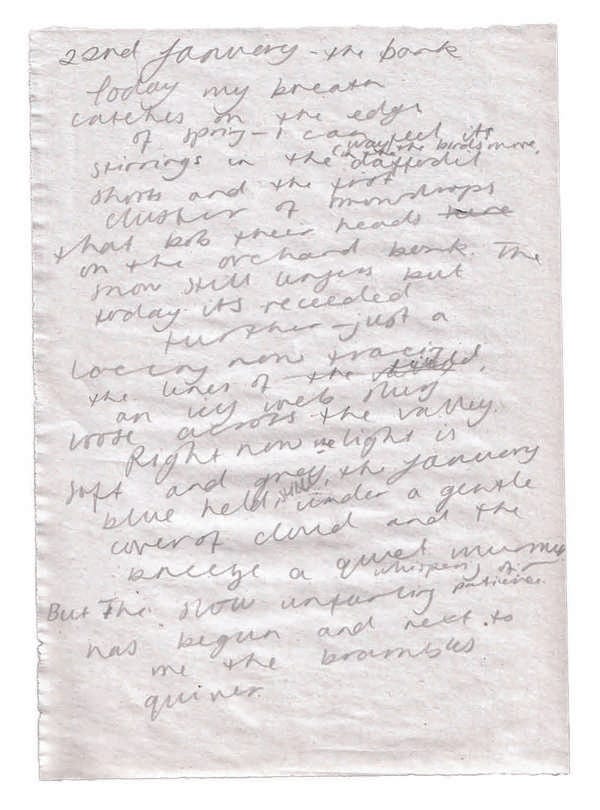 22nd January - the bank
Today my breath
catches on the edge
of spring - I can feel its
way the birds move,
stirrings in the daffodil
shoots and the first
cluster of snowdrops
that bob their heads
on the orchard bank. The
snow still lingers but
today its receeded
further - just a
lacing now tracing
the lines of the field,
an icy web slung
loose across the valley.
Right now the light is
soft and grey, the January
blue held still under a gentle
cover of cloud and the
breeze a quiet murmur
whispering of patience.
But The slow unfurling
has begun and next to
me the brambles
quiver.